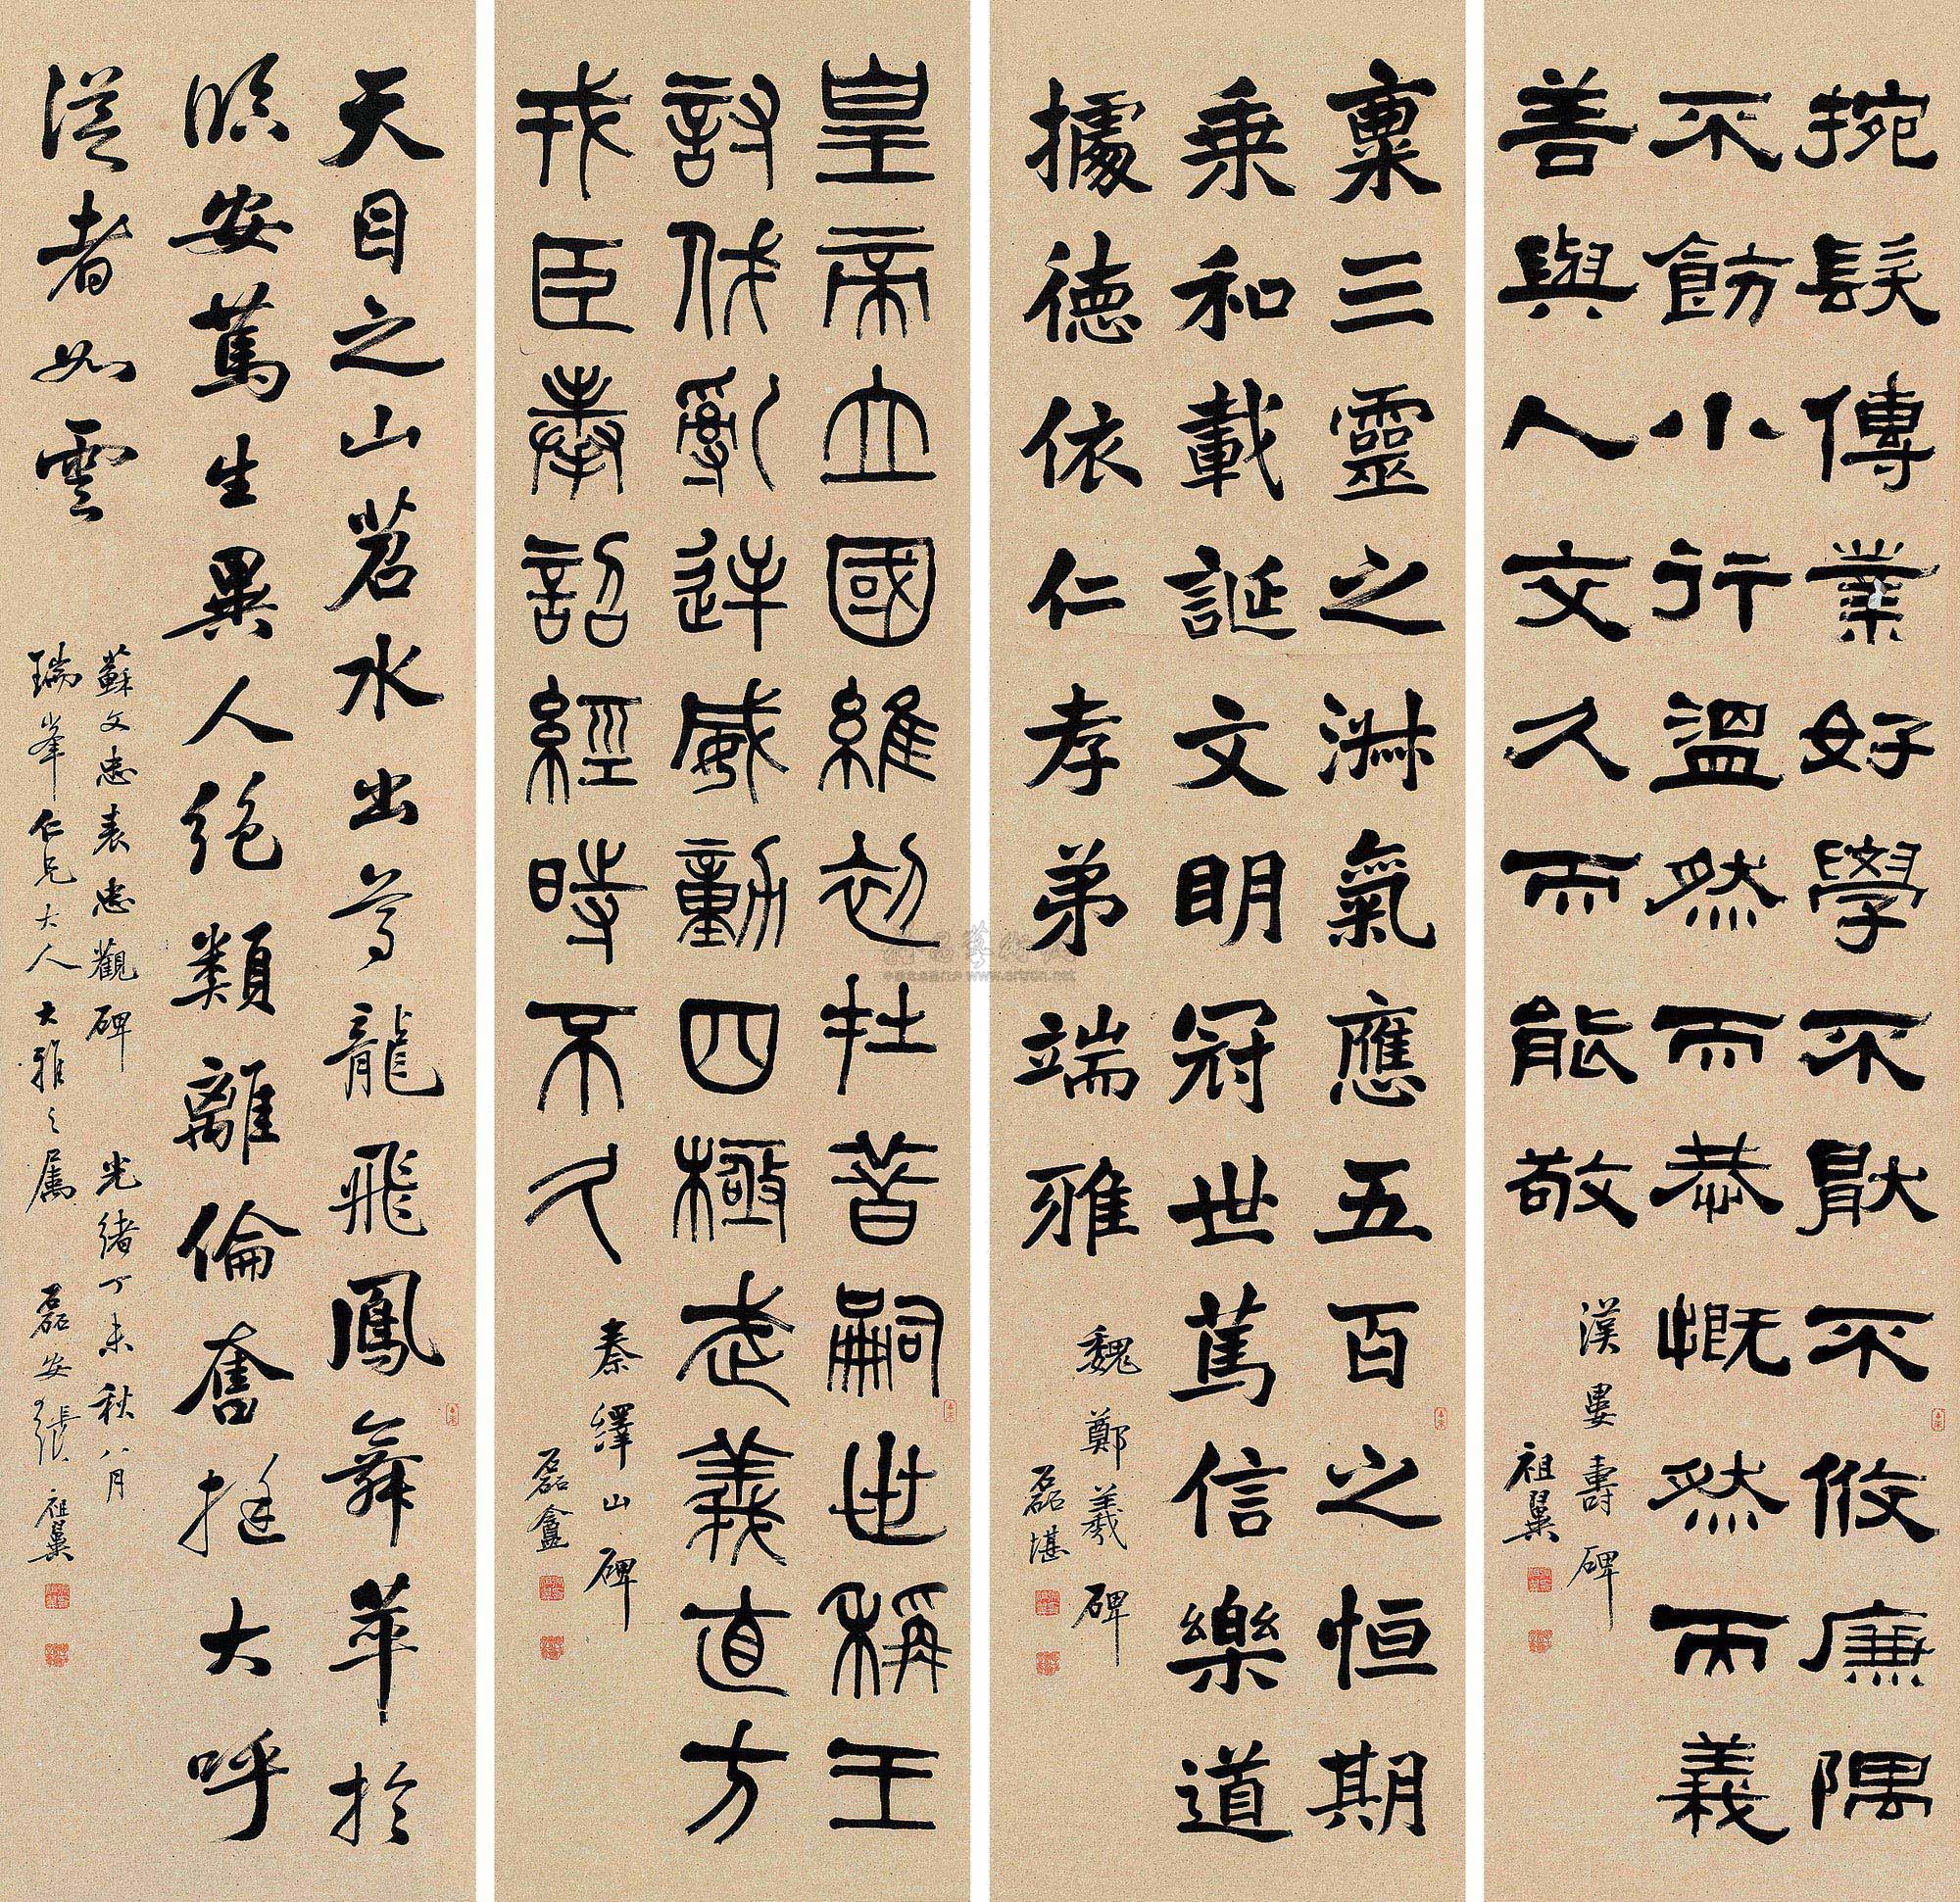 捥髮傳業好學不猒不攸廉隅
不飭小行溫然而恭慨然而義
善與人交久而能敬
漢婁壽碑
祖翼
稟三靈之淋氣應五百之恒期
乘和載誕文明冠世篤信樂道
據德依仁孝弟端雅
魏鄭羲碑
磊堪
皇帝立國維初在昔嗣世稱王
討伐亂逆威動四極武義直方
戎臣奉詔經時不久
秦繹山碑
磊盦
天目之山苕水出焉龍飛鳳舞萃於
臨安篤生異人絕類離倫奮挺大呼
從者如雲
蘇文忠表忠觀碑 光緒丁未秋八月
瑞峯仁兄大人大雅之属 磊安張祖翼
www.artron.net